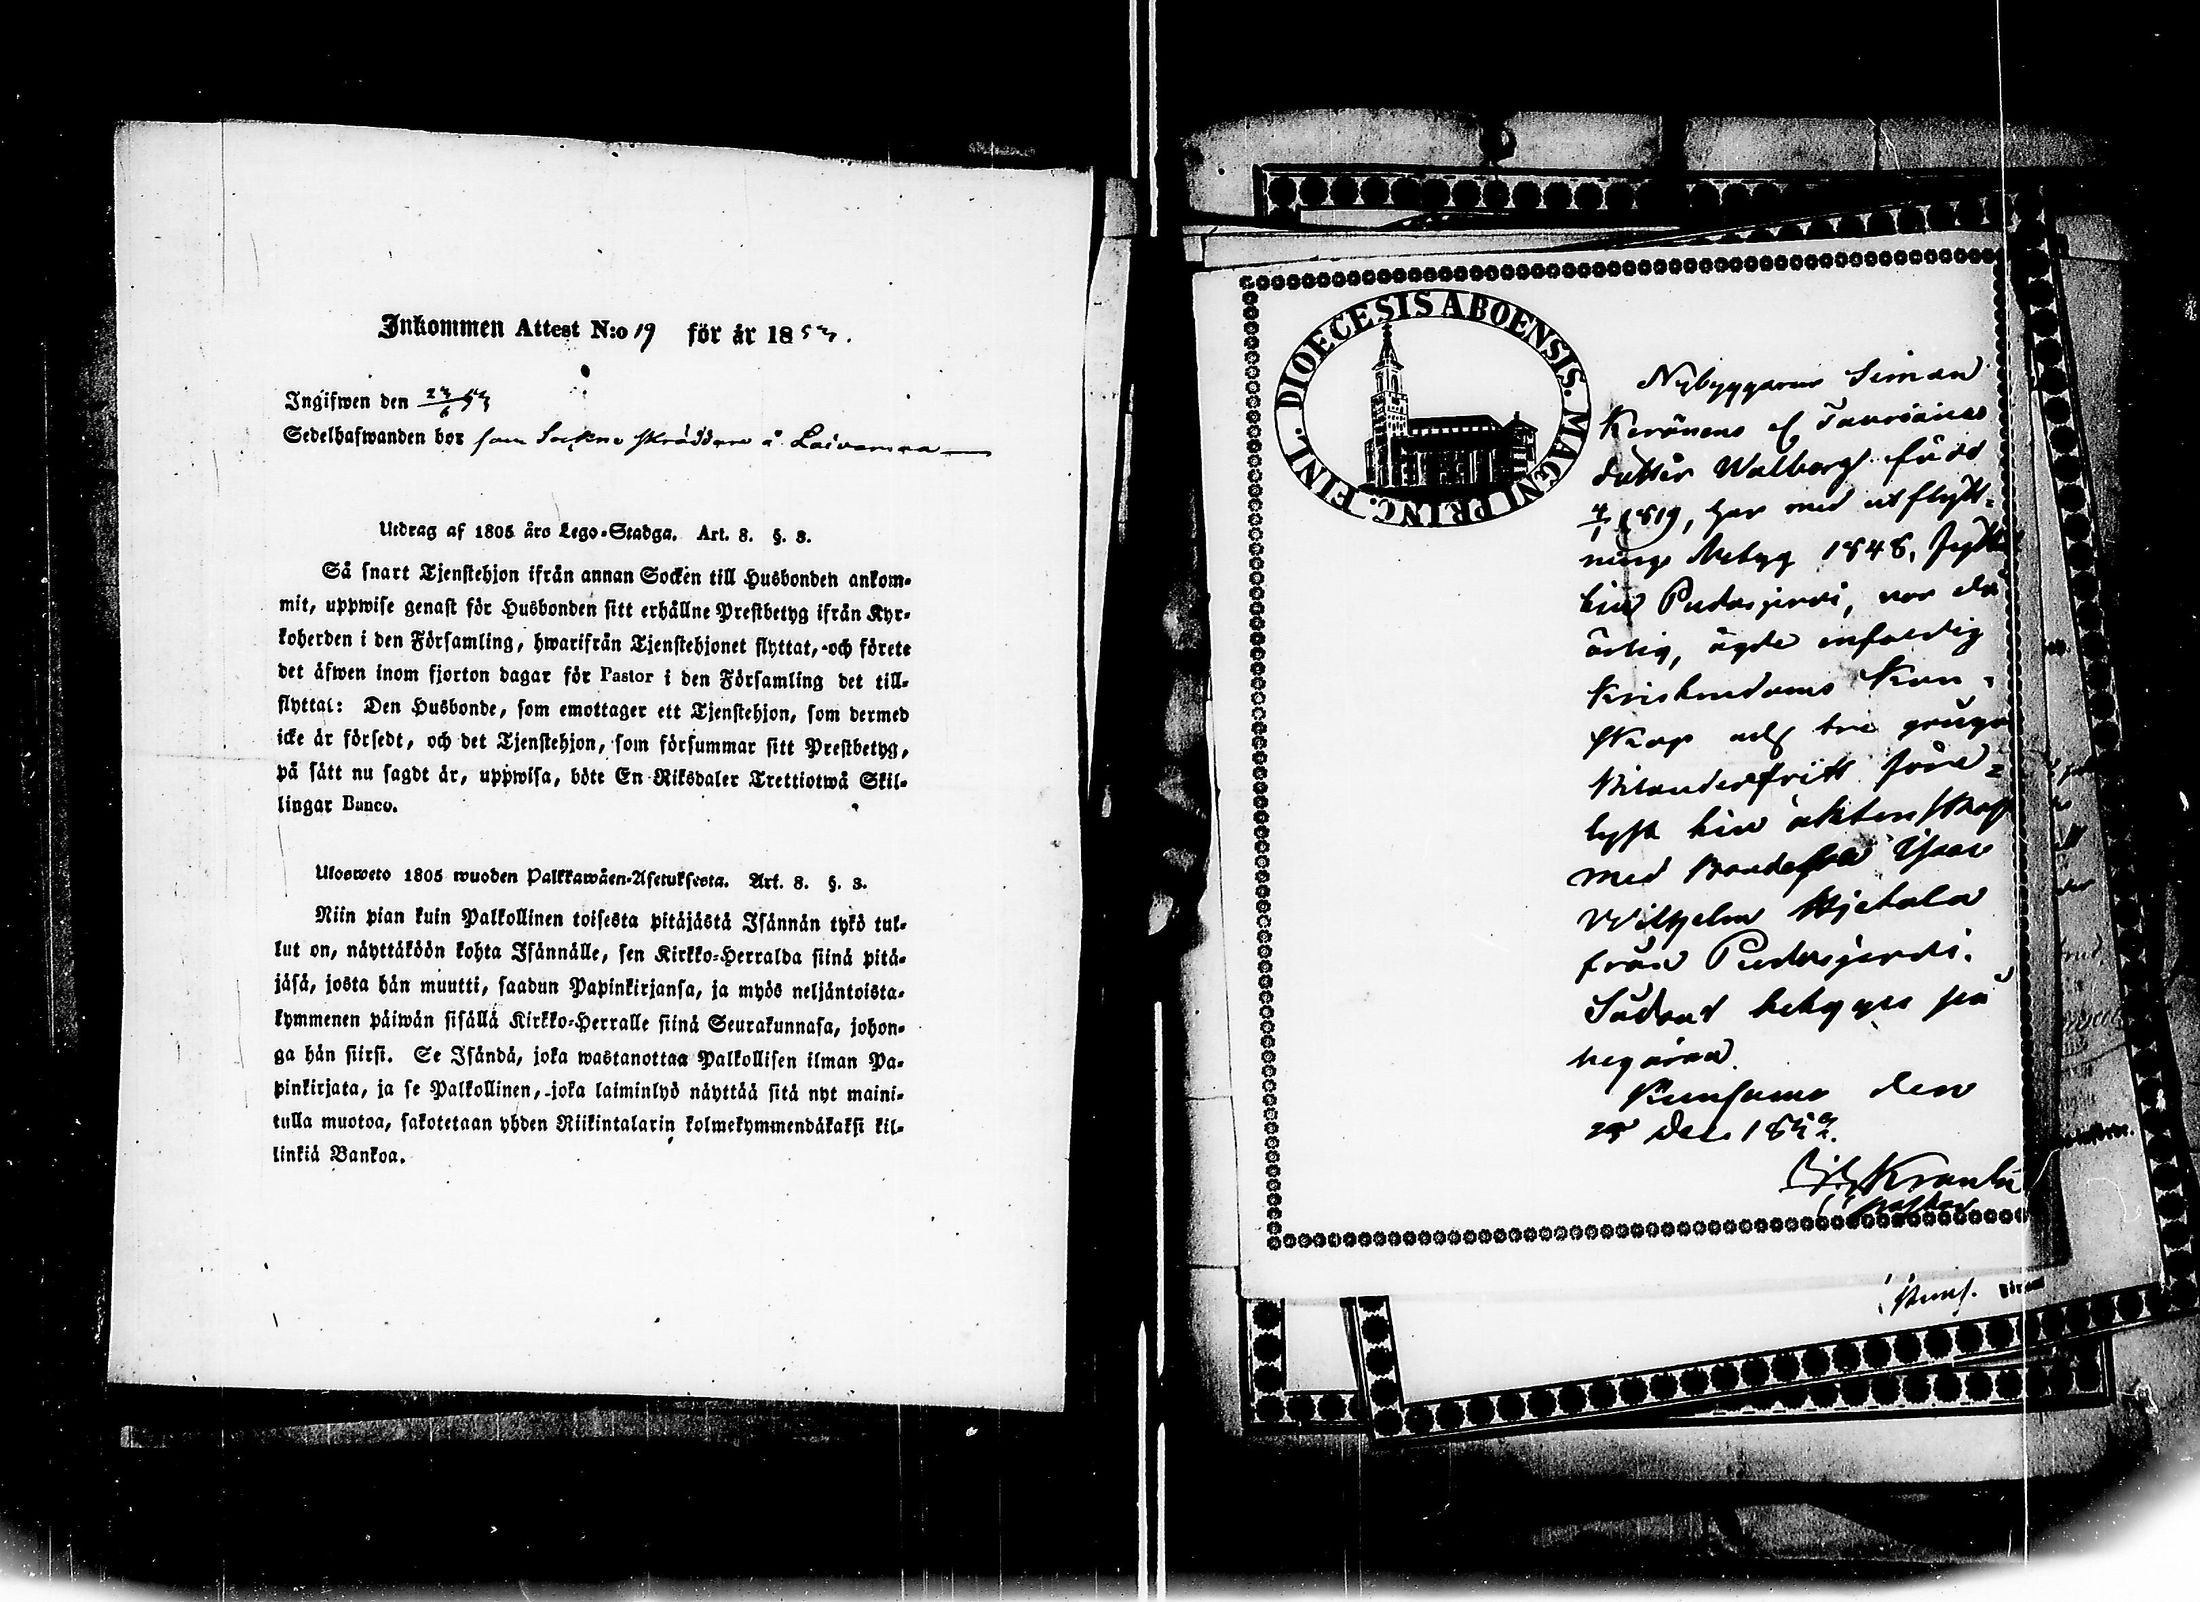 Inkommen Attest N:o 19 för år 1853.
Ingifwen den 23/6 53
Sedelhafwanden bor som Sockne skräddare å Laivamaa
Utdrag af 1805 års Lego-Stadga. Art. 8. §. 3.
Så snart Tjenstehjon ifrån annan Socken till Husbonden ankom-
mit, uppwise genast för Husbonden sitt erhållne Prestbetyg ifrån Kyr-
koherden i den Församling, hwarifrån Tjenstehjonet flyttat, och förete
det äfwen inom fjorton dagar för Pastor i den Församling det till-
flyttat: Den Husbonde, som emottager ett Tjenstehjon, som dermed
icke är försedt, och det Tjenstehjon, som försummar sitt Prestbetyg,
på sätt nu sagdt är, uppwisa, böte En Riksdaler Trettiotwå Skil-
lingar Banco.
Ulosweto 1805 wuoden Palkkawäen-Asetuksesta. Art. 8. §. 3.
Niin pian kuin Palkollinen toisesta pitäjästä Isännän tykö tul-
lut on, näyttäköön kohta Isännälle, sen Kirkko-Herralda siinä pitä-
jäsä, josta hän muutti, saadun Papinkirjansa, ja myös neljäntoista-
kymmenen päiwän sisällä Kirkko-Herralle siinä Seurakunnasa, johon-
ga hän siirsi. Se Isändä, joka wastanottaa Palkollisen ilman Pa-
pinkirjata, ja se Palkollinen, joka laiminlyö näyttää sitä nyt maini-
tulla muotoa, sakotetaan yhden Riikintalarin kolmekymmendäkaksi kil-
linkiä Bankoa.
DIOECESIS ABOENSIS. MAGNI PRINC. FINL.
Nybyggaren Simon
Keränens
dotter Walborg född
1819, har med utflytt-
nings betyg 1848, flytt
till Pudasjervi, var då
ärlig, ägde enfaldig
Kristendoms Kun-
skap och tre gånger
klanderfritt före-
lyst till äktenskap
med Isac
Wilhelm Hjetala
från Pudasjervi.
Sådant betygas på
begäran.
Kuusamo den
Dec 1852.
pastor